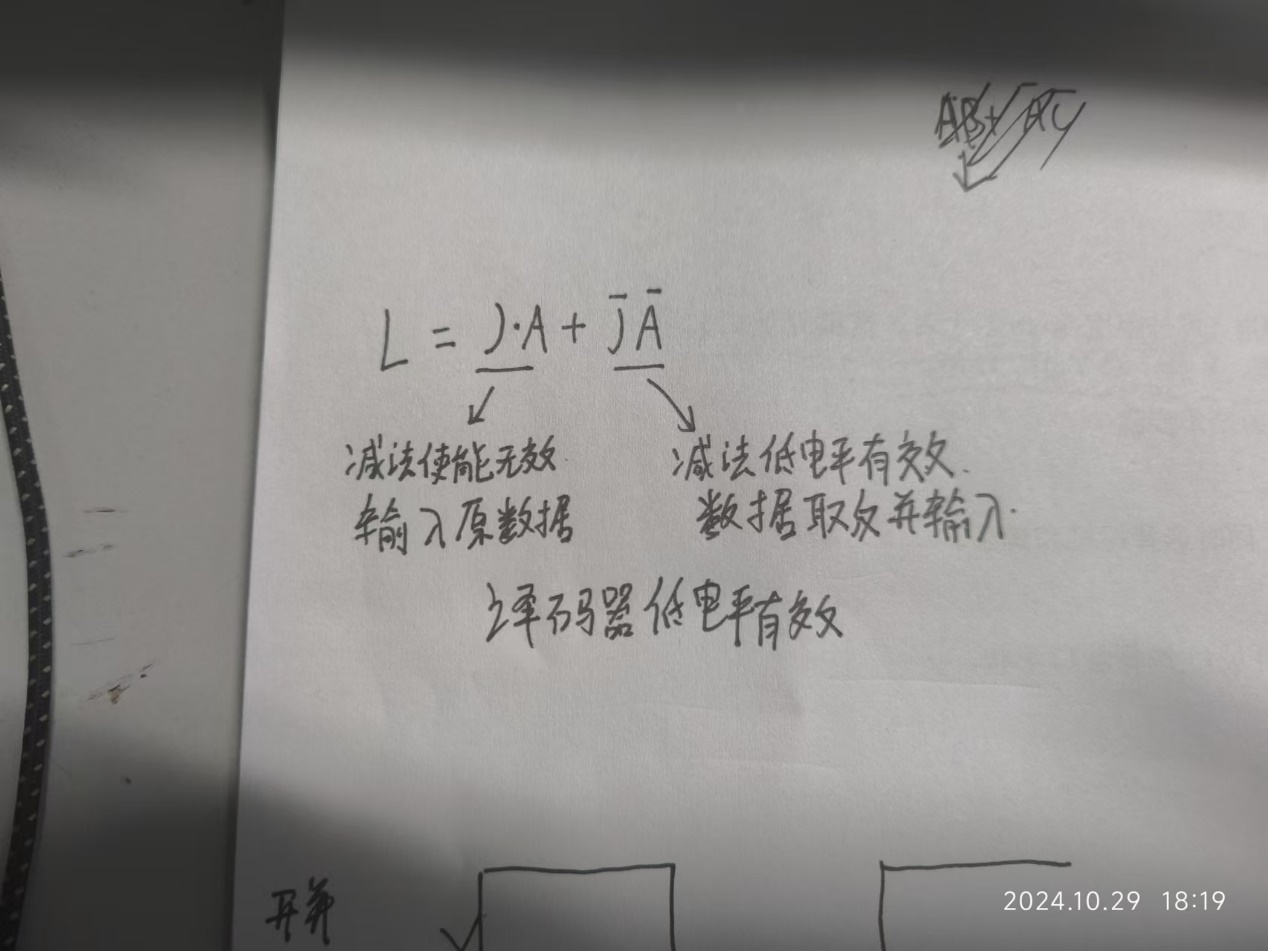 L = J·A + J̅ A̅
减法使能无效
输入原数据
减法低电平有效.
数据取反并输入.
译码器低电平有效
2024.10.29 18:19